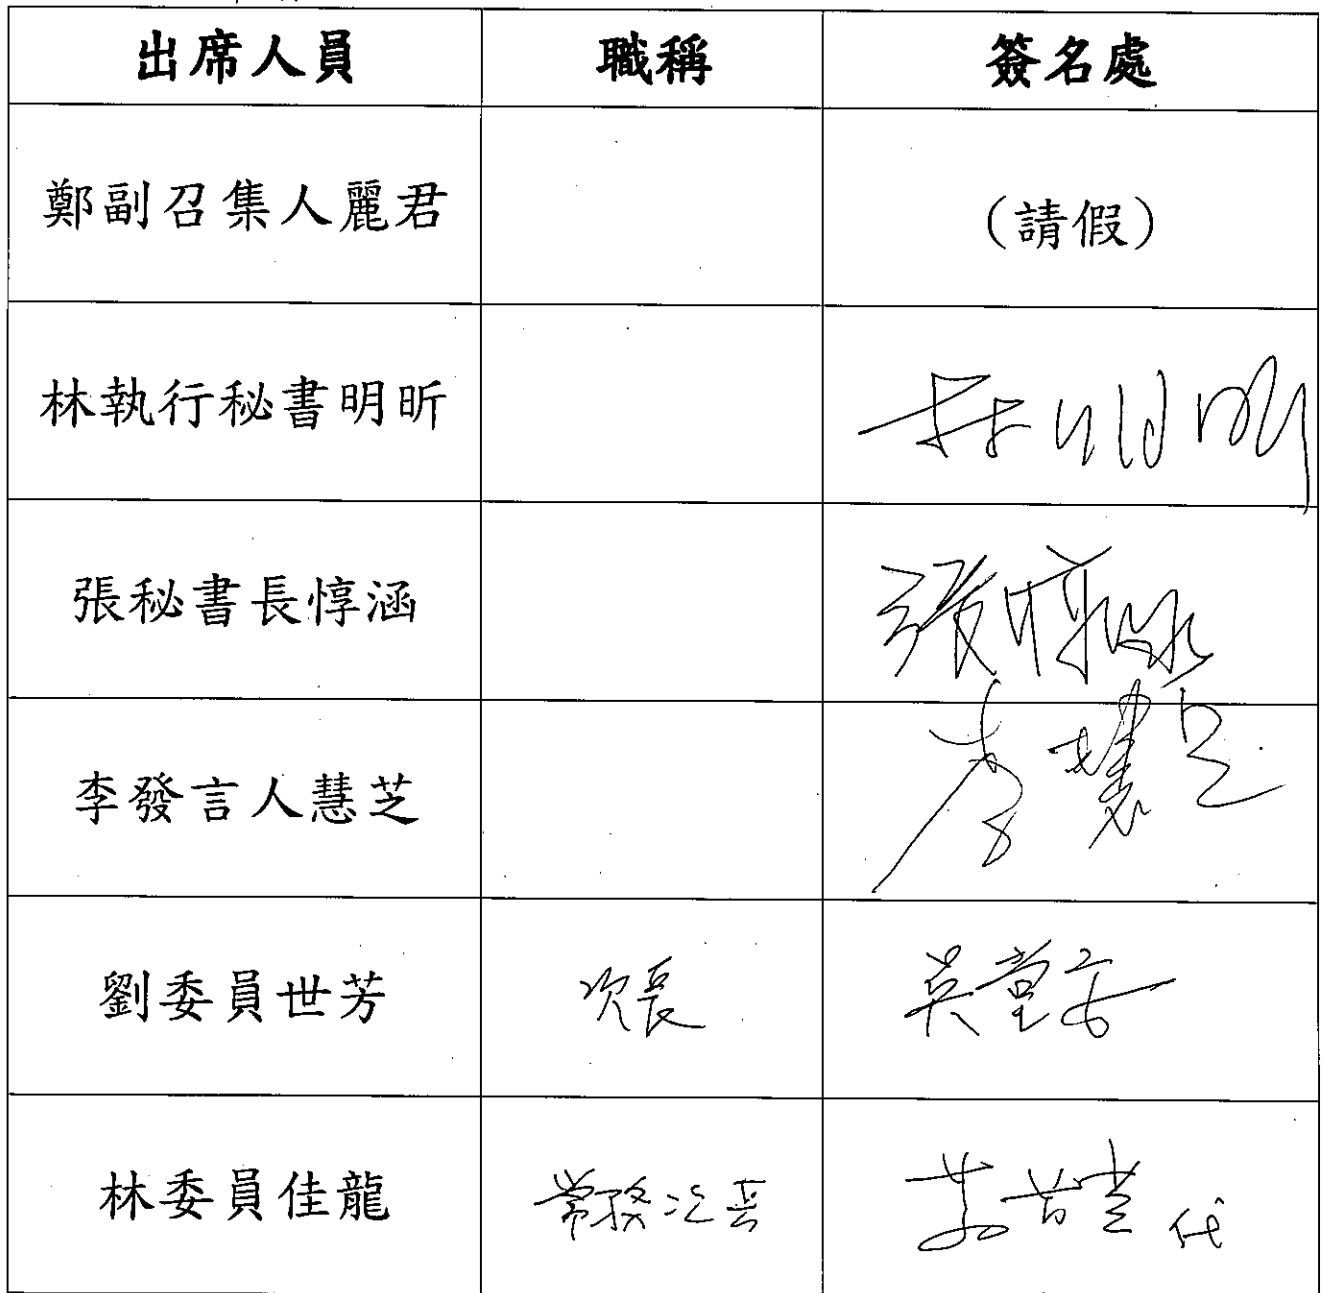 出席人員 職稱 簽名處
鄭副召集人麗君 (請假)
林執行秘書明昕 林明昕
張秘書長惇涵 張惇涵
李發言人慧芝 李慧芝
劉委員世芳 次長 吳堂安
林委員佳龍 常務次長 代